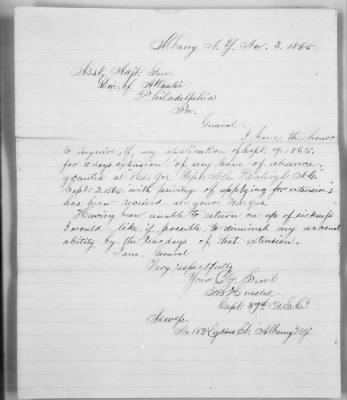 Albany N.Y. Nov. 3. 1865
Asst. Adjt. Gen.
Div. of Atlantic
Philadelphia
Pa.
General.
I have the honor
to inquire, if my application of Sept. 19. 1865.
for 10 days extension of my leave of absence,
granted at Hd. Qrs. Dept. N.Ca. Raleigh N.Ca.
Sept. 2. 1865. with privilege of applying for extension;
has been received at your Hd. Qrs.
Having been unable to return on a/c of sickness
I would like if possible, to diminish my
ability by the ten days of that extension.
I am, General
Very respectfully
Your Obt. Servt.
Capt. U.S.
Address.
No. 159 Lydius St. Albany N.Y.